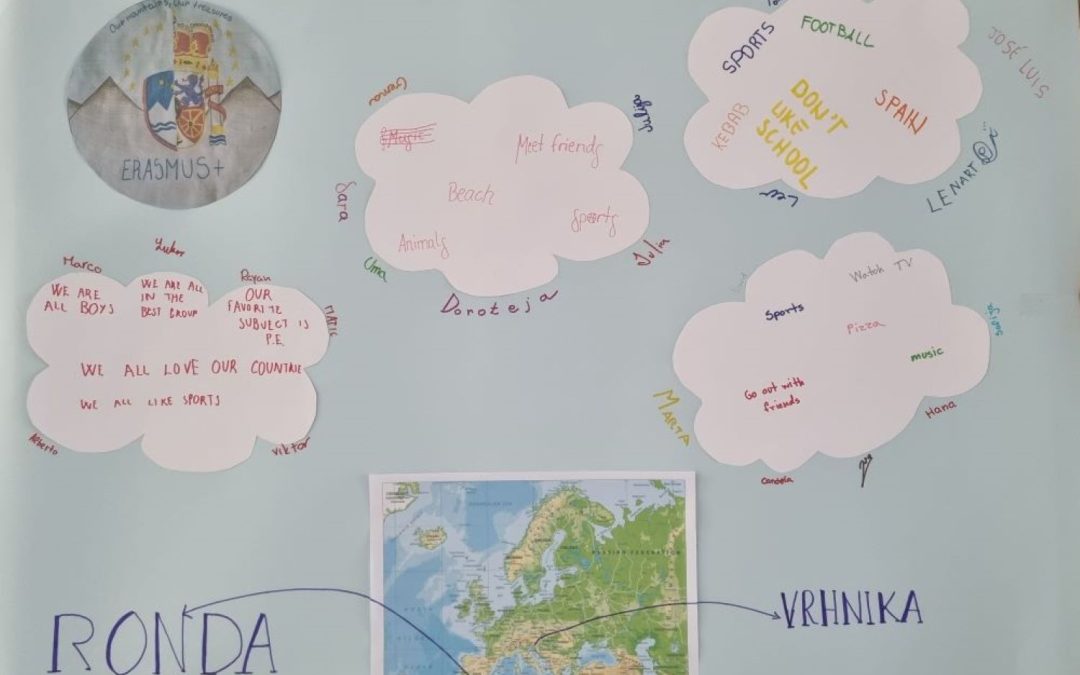 Our mountains, our treasures
ERASMUS+
Gema
Julija
Magic
Meet friends
Beach
Sports
Animals
Sara
Uma
Julia
Doroteja
SPORTS
FOOTBALL
DON'T
LIKE
SCHOOL
KEBAB
SPAIN
JOSÉ LUIS
LENART
Marco
Rayan
MATIC
WE ARE
ALL BOYS
WE ARE ALL
IN THE
BEST GROUP
OUR
FAVORITE
SUBJECT IS
P.E.
WE ALL LOVE OUR COUNTRIE
WE ALL LIKE SPORTS
Alberto
Viktor
Watch TV
Sports
Pizza
music
Go out with
friends
MARTA
Hana
Candela
RUSSIAN FEDERATION
RONDA
VRHNIKA